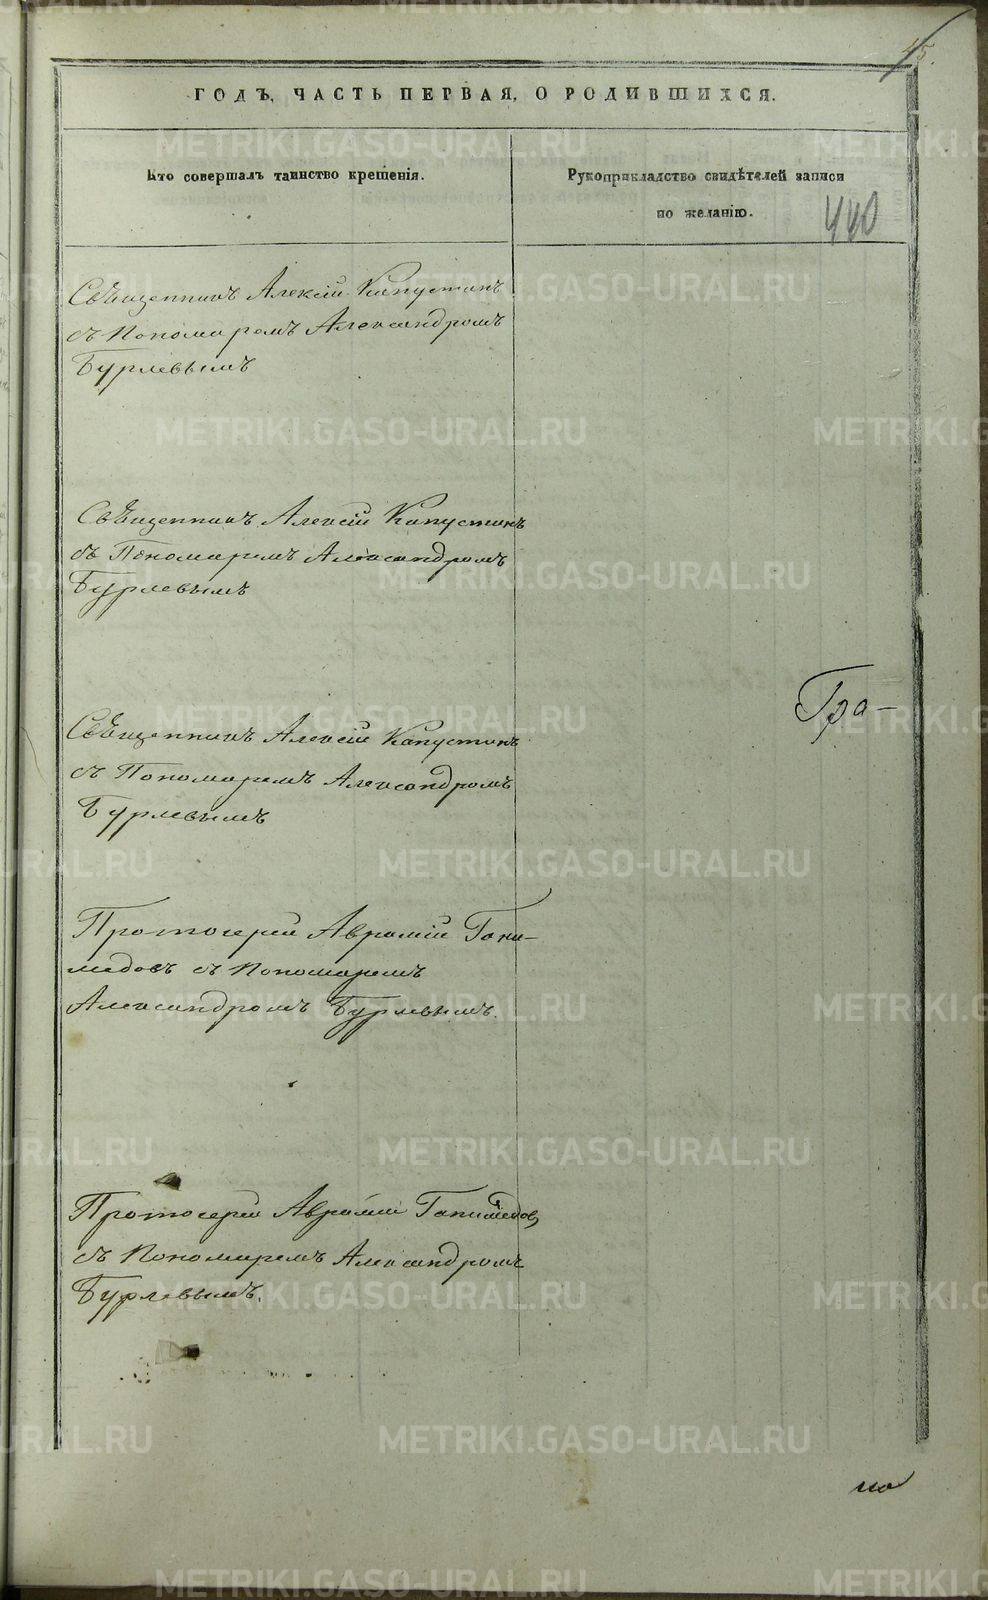 45.
ГОДЪ, ЧАСТЬ ПЕРВАЯ, О РОДИВШИХСЯ.
Кто совершалъ таинство крещенія.
Рукоприкладство свидѣтелей записи
по желанію.
440
Священникъ Алексій Капустинъ
съ Пономаремъ Александромъ
Бурлевымъ
Священникъ Алексій Капустинъ
съ Пономаремъ Александромъ
Бурлевымъ
Гра-
Священникъ Алексій Капустинъ
съ Пономаремъ Александромъ
Бурлевымъ
Протоіерей Аврамій Гани-
медовъ съ Пономаремъ
Александромъ Бурлевымъ.
Протоіерей Аврамій Ганимедовъ
съ Пономаремъ Александромъ
Бурлевымъ.
METRIKI.GASO-URAL.RU